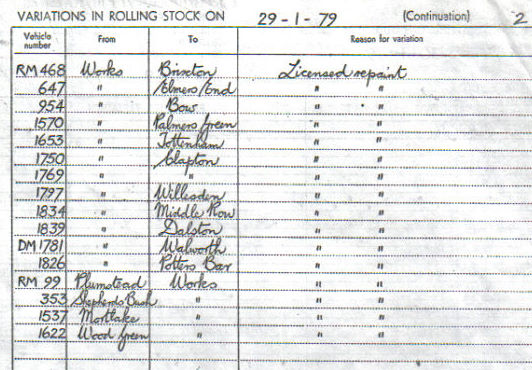 VARIATIONS IN ROLLING STOCK ON 29-1-79 (Continuation) 2
Vehicle number From To Reason for variation
RM 468 Works Brixton Licensed repaint
647 " Elmers End " "
954 " Bow " "
1570 " Palmers Green " "
1653 " Tottenham " "
1750 " Clapton " "
1769 " " " "
1797 " Willesden " "
1834 " Middle Row " "
1839 " Dalston " "
DM 1781 " Walworth " "
1826 " Potters Bar " "
RM 99 Plumstead Works " "
353 Shepherds Bush " " "
1537 Mortlake " " "
1622 Wood Green " " "